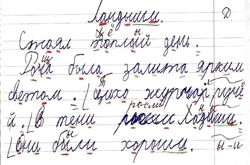 Ландиши. Д
Стоял тёплый день.
Роща была залита ярким
светом. Тихо журчал ручей
й. В тени росли ландиши.
Они были хороши. ы-и